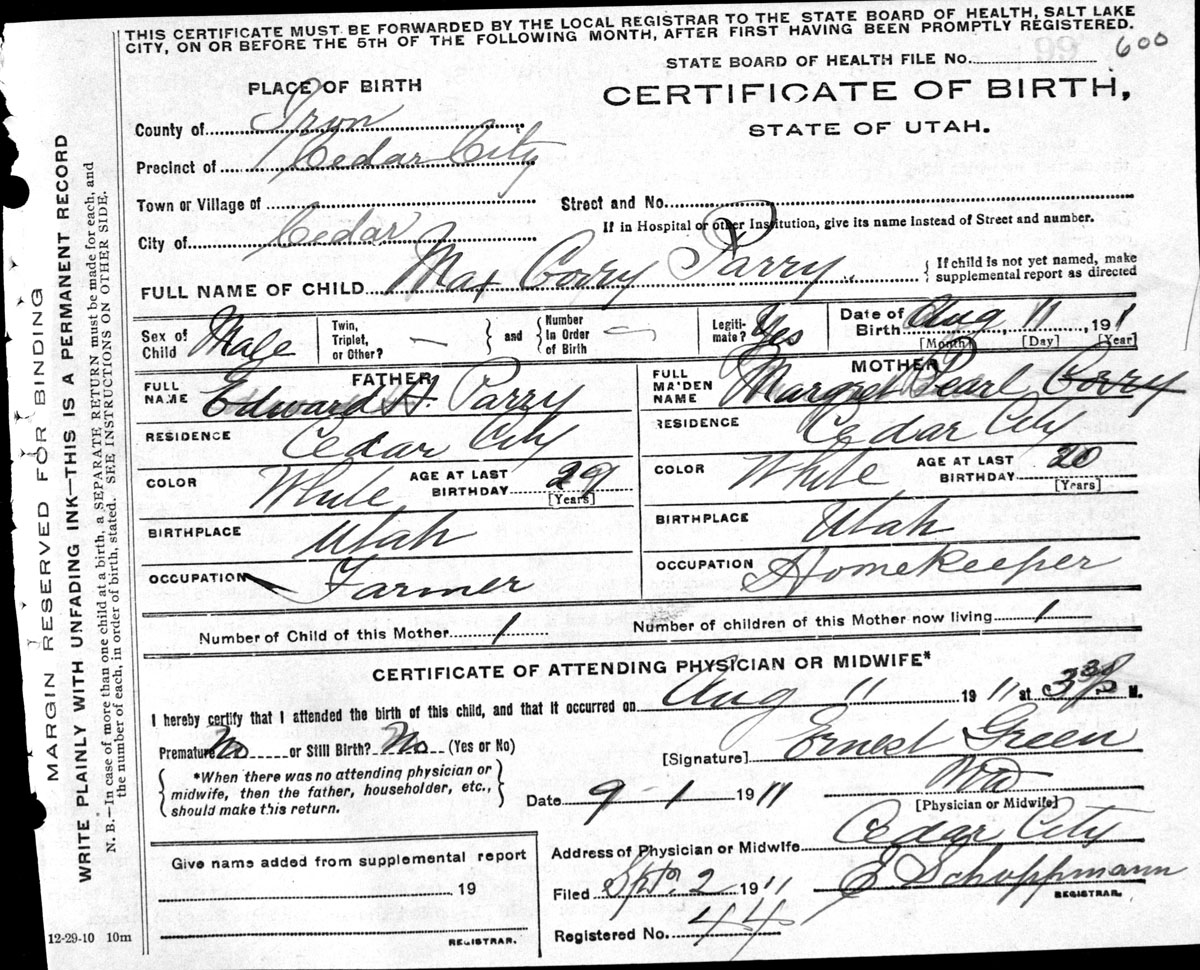 THIS CERTIFICATE MUST BE FORWARDED BY THE LOCAL REGISTRAR TO THE STATE BOARD OF HEALTH, SALT LAKE
CITY, ON OR BEFORE THE 5TH OF THE FOLLOWING MONTH, AFTER FIRST HAVING BEEN PROMPTLY REGISTERED.
STATE BOARD OF HEALTH FILE No. 600
PLACE OF BIRTH
CERTIFICATE OF BIRTH,
STATE OF UTAH.
County of Iron
Precinct of Cedar City
Town or Village of
Street and No.
If in Hospital or other Institution, give its name instead of Street and number.
City of Cedar
FULL NAME OF CHILD Max Corry Parry
If child is not yet named, make
supplemental report as directed
Sex of Child Male
Twin, Triplet, or Other? —
and
Number In Order of Birth —
Legiti-mate? Yes
Date of Birth Aug 11, 1911
[Month] [Day] [Year]
FATHER
FULL NAME Edward H. Parry
RESIDENCE Cedar City
COLOR White AGE AT LAST BIRTHDAY 29
[Years]
BIRTHPLACE Utah
OCCUPATION Farmer
MOTHER
FULL MAIDEN NAME Margret Pearl Corry
RESIDENCE Cedar City
COLOR White AGE AT LAST BIRTHDAY 20
[Years]
BIRTHPLACE Utah
OCCUPATION Homekeeper
Number of Child of this Mother 1 Number of children of this Mother now living 1
CERTIFICATE OF ATTENDING PHYSICIAN OR MIDWIFE*
I hereby certify that I attended the birth of this child, and that it occurred on Aug 11 1911 at M.
Premature No or Still Birth? No (Yes or No)
[Signature] Ernest Green
*When there was no attending physician or
midwife, then the father, householder, etc.,
should make this return.
Date 9-1 1911
[Physician or Midwife]
Address of Physician or Midwife Cedar City
Give name added from supplemental report
19
REGISTRAR.
Filed Sept. 2 1911 E Schoppmann
REGISTRAR.
Registered No. 44
12-29-10 10m
MARGIN RESERVED FOR BINDING
WRITE PLAINLY WITH UNFADING INK—THIS IS A PERMANENT RECORD
N. B.—In case of more than one child at a birth, a SEPARATE RETURN must be made for each, and
the number of each, in order of birth, stated. SEE INSTRUCTIONS ON OTHER SIDE.